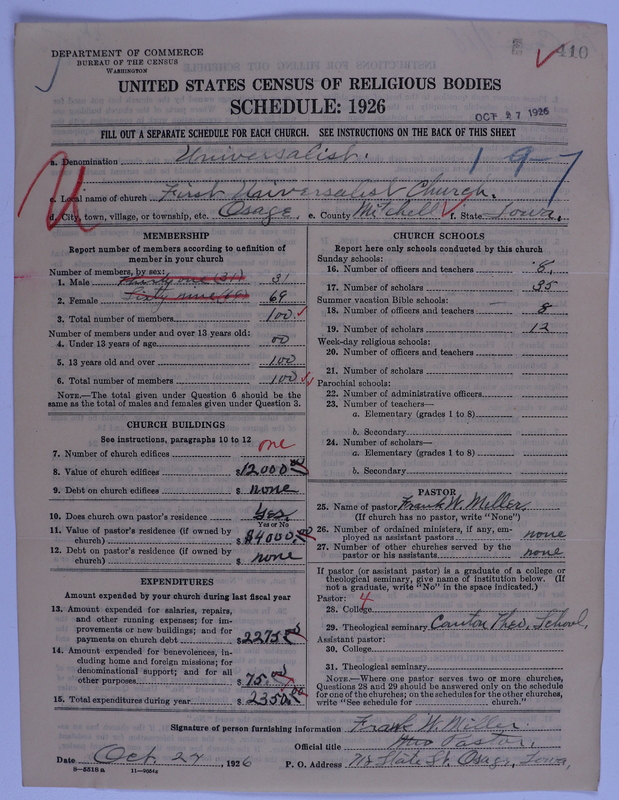 410
DEPARTMENT OF COMMERCE
BUREAU OF THE CENSUS
WASHINGTON
UNITED STATES CENSUS OF RELIGIOUS BODIES
SCHEDULE: 1926
OCT 27 1926
FILL OUT A SEPARATE SCHEDULE FOR EACH CHURCH. SEE INSTRUCTIONS ON THE BACK OF THIS SHEET
a. Denomination Universalist.
19-7
c. Local name of church First Universalist Church.
d. City, town, village, or township, etc. Osage, e. County Mitchell f. State Iowa,
MEMBERSHIP
Report number of members according to definition of
member in your church
Number of members, by sex:
1. Male Thirty one (31) 31
2. Female 69
3. Total number of members 100
Number of members under and over 13 years old:
4. Under 13 years of age 00
5. 13 years old and over 100
6. Total number of members 100
NOTE.—The total given under Question 6 should be
same as the total of males and females given under Question 3.
CHURCH BUILDINGS
See instructions, paragraphs 10 to 12
7. Number of church edifices one
8. Value of church edifices $12000.00
9. Debt on church edifices $ none
10. Does church own pastor's residence Yes.
Yes or No
11. Value of pastor's residence (if owned by
church) $4000.00
12. Debt on pastor's residence (if owned by
church) $ none
EXPENDITURES
Amount expended by your church during last fiscal year
13. Amount expended for salaries, repairs,
and other running expenses; for im-
provements or new buildings; and for
payments on church debt $2275.00
14. Amount expended for benevolences, in-
cluding home and foreign missions; for
denominational support; and for all
other purposes $75.00
15. Total expenditures during year $2350.00
CHURCH SCHOOLS
Report here only schools conducted by this church
Sunday schools:
16. Number of officers and teachers 8.
17. Number of scholars 35
Summer vacation Bible schools:
18. Number of officers and teachers 8
19. Number of scholars 12
Week-day religious schools:
20. Number of officers and teachers
21. Number of scholars
Parochial schools:
22. Number of administrative officers
23. Number of teachers—
a. Elementary (grades 1 to 8)
b. Secondary
24. Number of scholars—
a. Elementary (grades 1 to 8)
b. Secondary
PASTOR
25. Name of pastor Frank W. Miller.
(If church has no pastor, write "None")
26. Number of ordained ministers, if any, em-
ployed as assistant pastors none
27. Number of other churches served by the
pastor or his assistants none
If pastor (or assistant pastor) is a graduate of a college or
theological seminary, give name of institution below. (If
not a graduate, write "No" in the space indicated.)
Pastor: 4
28. College
29. Theological seminary Canton Theo. School.
Assistant pastor:
30. College
31. Theological seminary
NOTE.—Where one pastor serves two or more churches,
Questions 28 and 29 should be answered only on the schedule
for one of the churches; on the schedules for the other churches,
write "See schedule for church."
Signature of person furnishing information Frank W. Miller.
Official title Pastor,
Date Oct. 22, 1926 P. O. Address State St. Osage, Iowa,
8-5518 a 11-9084a